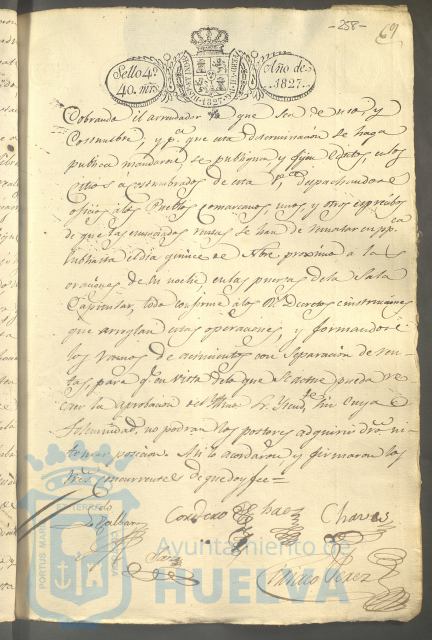 -258-
69
Sello 4º
40. mrs
Año de
1827.
Cobrando el arrendador lo que sea de uso y
Costumbre, y pª que esta determinacion se haga
publica mandaron se publique y fijen Edictos en los
sitios acostumbrados de esta vª despachandose
oficios á los Pueblos comarcanos, unos y otros expresibos
de que las enunciadas rentas se han de rematar en ppca
subhasta el dia quince de Nbre proximo á las
oraciones de su noche en las puertas dela Sala
Capitular, todo conforme á los Rs Decretos é instrucciones
que arreglan estas operaciones, y formandose
los Ramos de arrimientos con separacion de ren-
tas, para qe en vista dela que se actue pueda re-
caer la aprobacion del Sr Yntendte sin cuya
solemnidad no podran los postores adquirir dro ni
tomar posesion. Asi lo acordaron y firmaron los
Sres concurrentes de que doy fee=
Cordero
Chaves
Perez
PORTUS MARIS
Ayuntamiento de
HUELVA